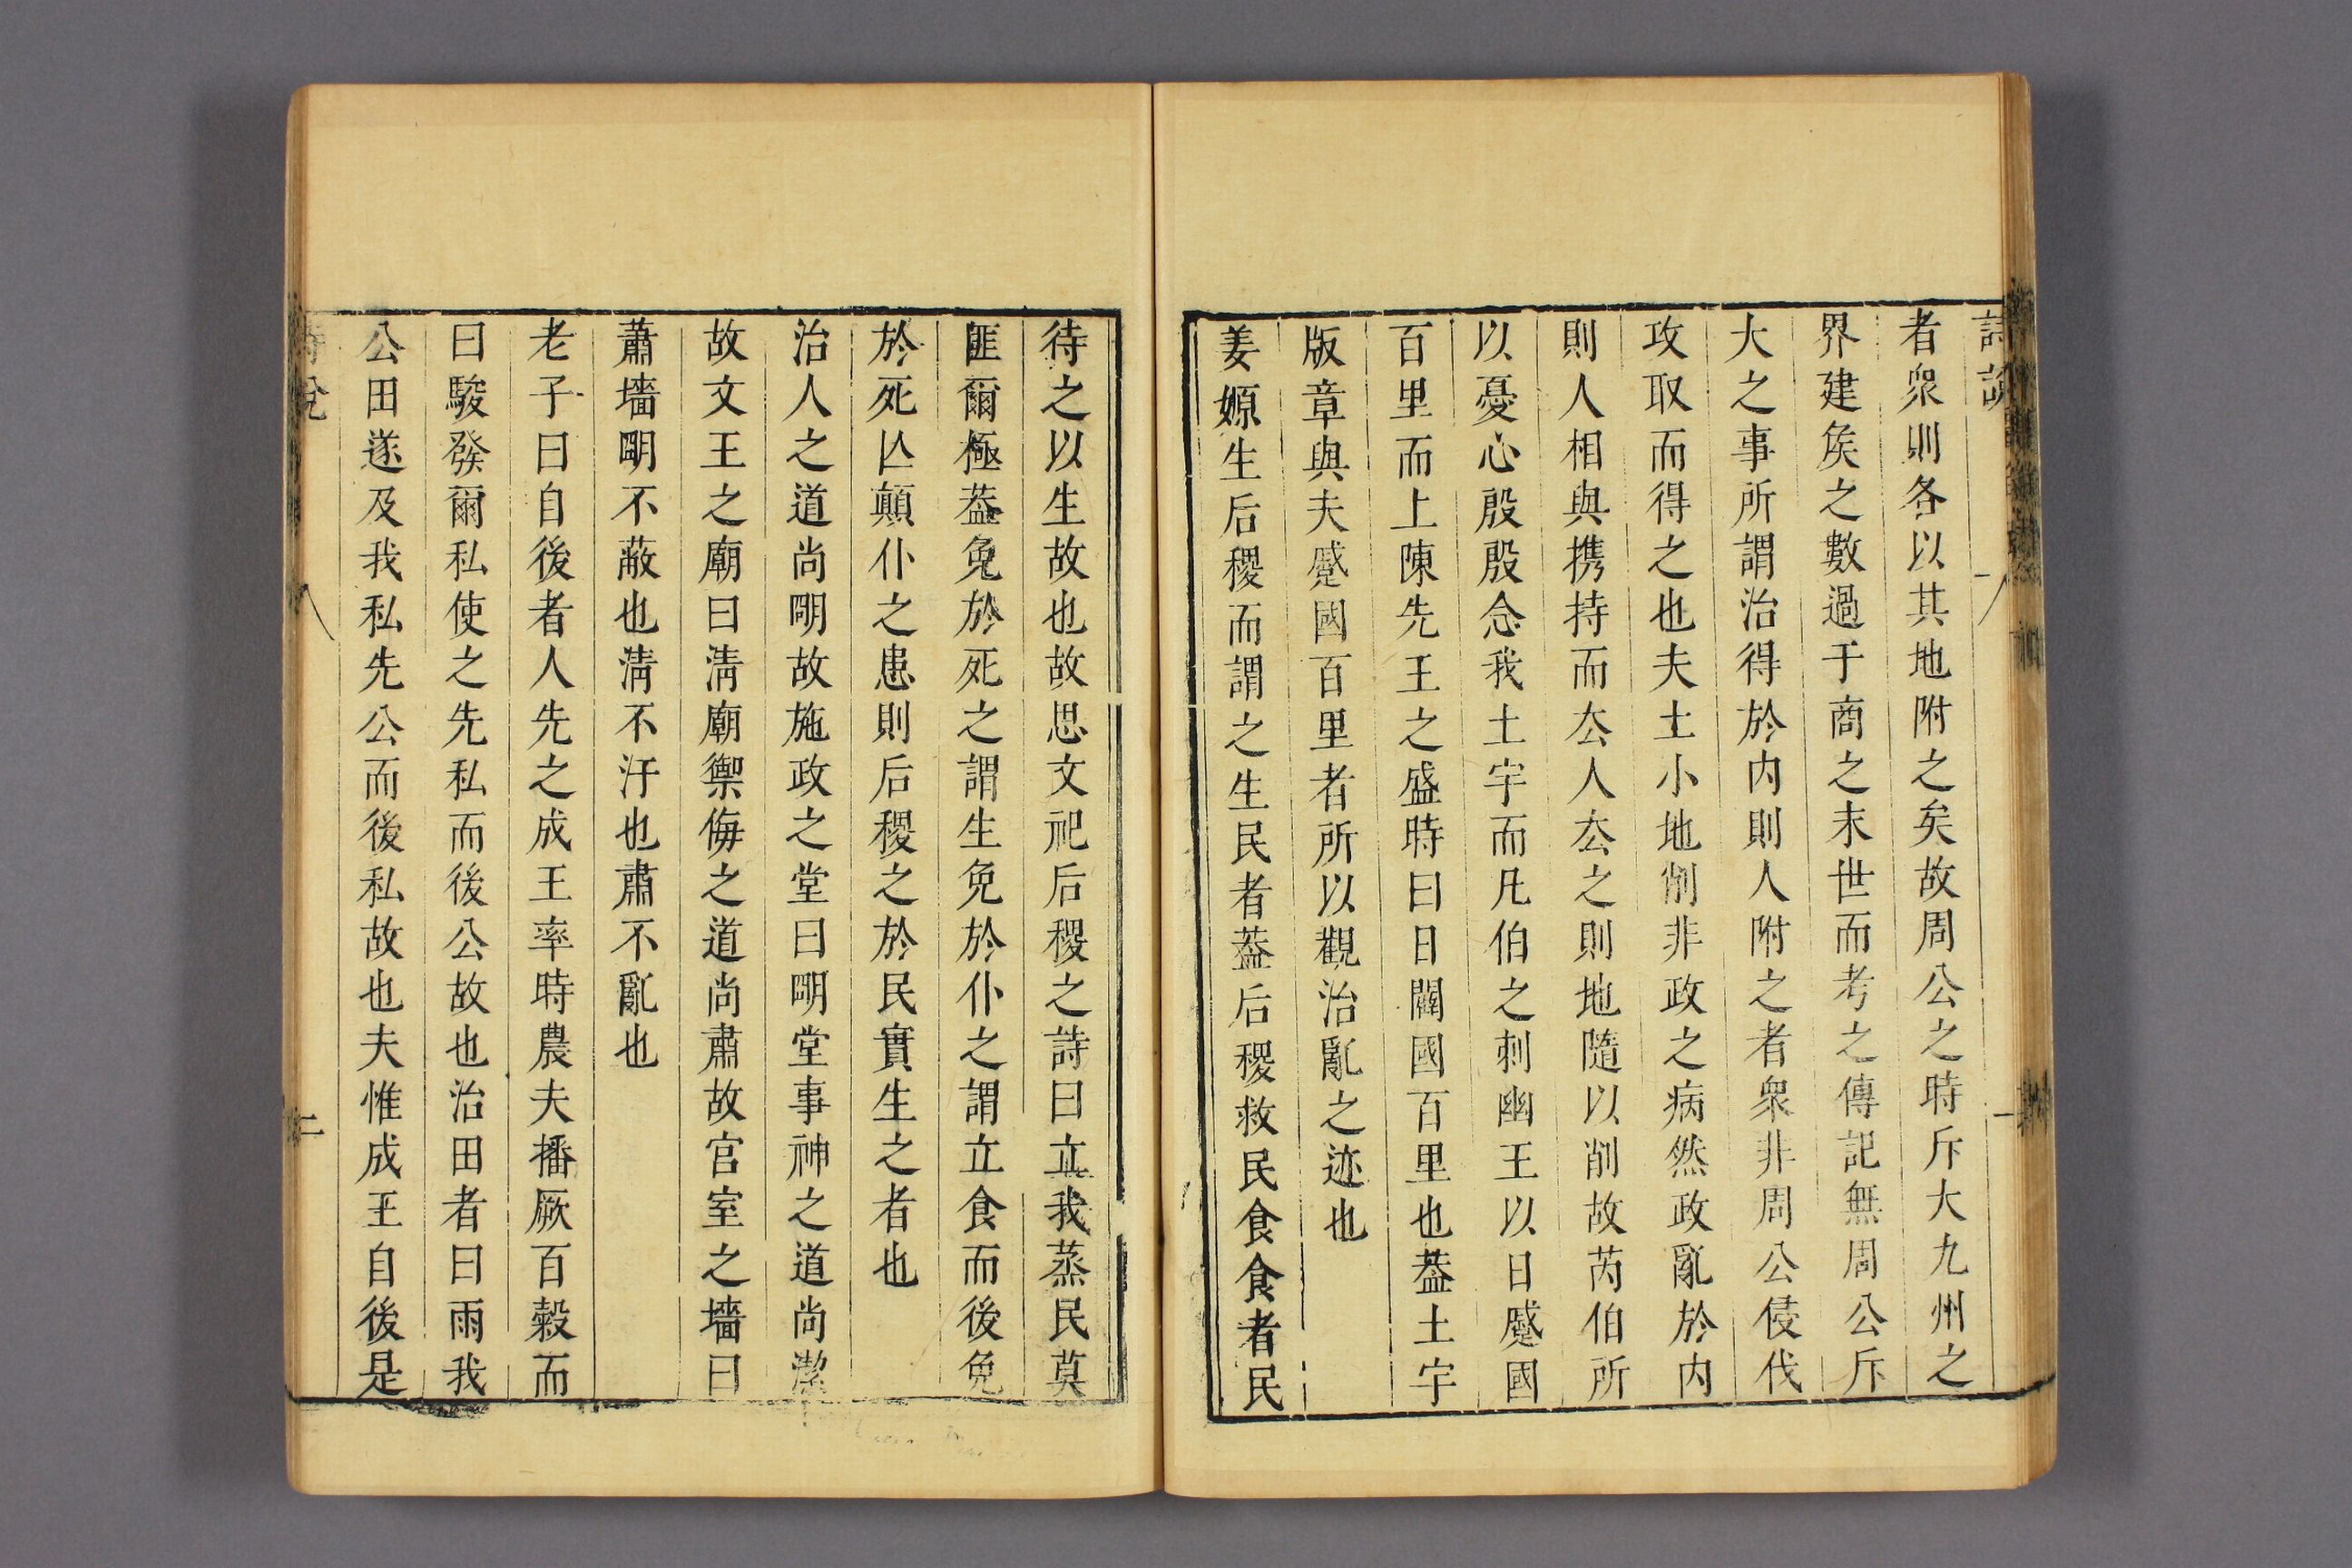 詩說
一
者衆則各以其地附之矣故周公之時斥大九州之
界建矦之數過于商之末世而考之傳記無周公斥
大之事所謂治得於内則人附之者衆非周公侵伐
攻取而得之也夫土小地削非政之病然政亂於内
則人相與携持而厺人厺之則地隨以削故芮伯所
以憂心殷殷念我土宇而凡伯之刺幽王以日蹙國
百里而上陳先王之盛時曰日闢國百里也葢土宇
版章與夫蹙國百里者所以觀治亂之迹也
姜嫄生后稷而謂之生民者葢后稷救民食食者民
待之以生故也故思文祀后稷之詩曰立我蒸民莫
匪爾極葢免於死之謂生免於仆之謂立食而後免
於死亾顛仆之患則后稷之於民實生之者也
治人之道尚明故施政之堂曰明堂事神之道尚潔
故文王之廟曰淸廟禦侮之道尚肅故宫室之墻曰
蕭墻明不蔽也淸不汙也肅不亂也
老子曰自後者人先之成王率時農夫播厥百穀而
曰駿發爾私使之先私而後公故也治田者曰雨我
公田遂及我私先公而後私故也夫惟成王自後是
詩說
二